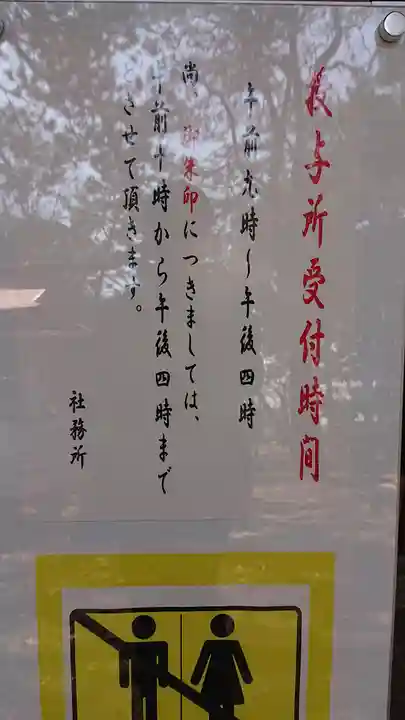 授与所受付時間
午前九時～午後四時
尚、御朱印につきましては、
午前十時から午後四時まで
とさせて頂きます。
社務所